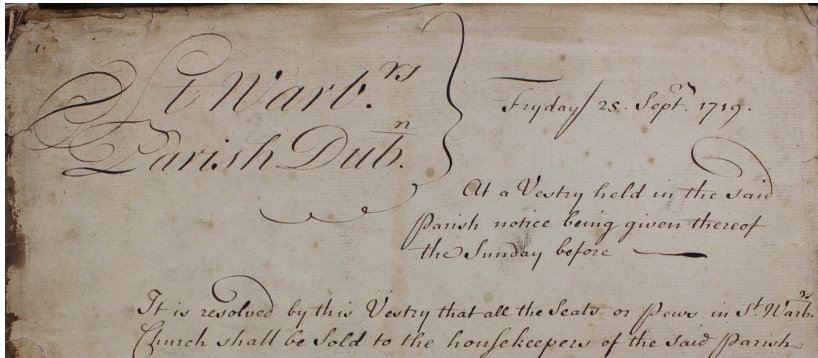 St Warb.rs
Parish Dubn.
Fryday 25. Septr. 1719.
At a Vestry held in the said
Parish notice being given thereof
the Sunday before
It is resolved by this Vestry that all the Seats or Pews in St. Warb.rs
Church shall be Sold to the housekeepers of the said Parish